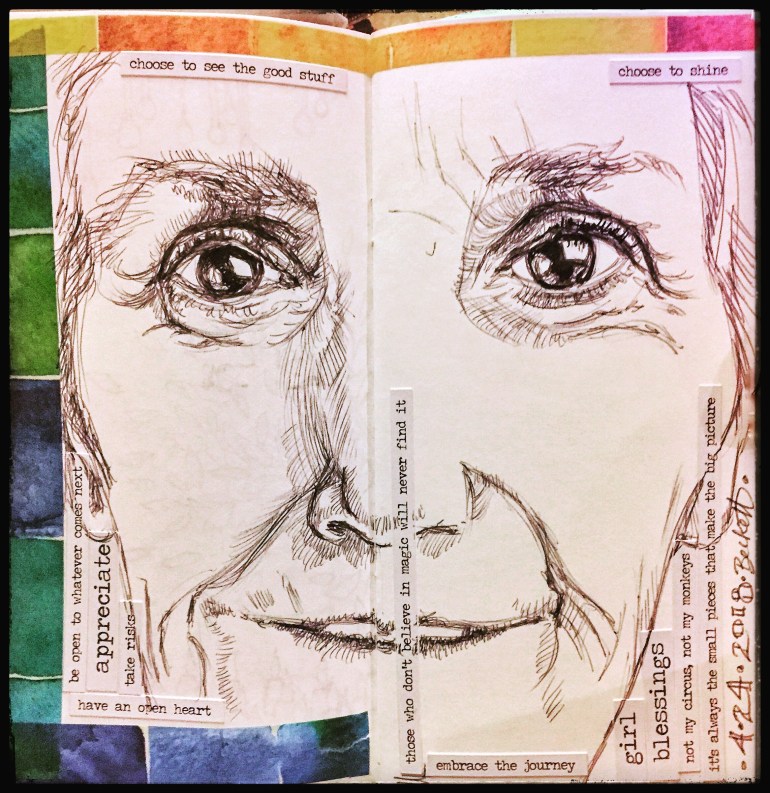 choose to see the good stuff
choose to shine
be open to whatever comes next
appreciate
take risks
have an open heart
those who don't believe in magic will never find it
embrace the journey
girl
blessings
not my circus, not my monkeys
it's always the small pieces that make the big picture
4.24.2018.Beckett.